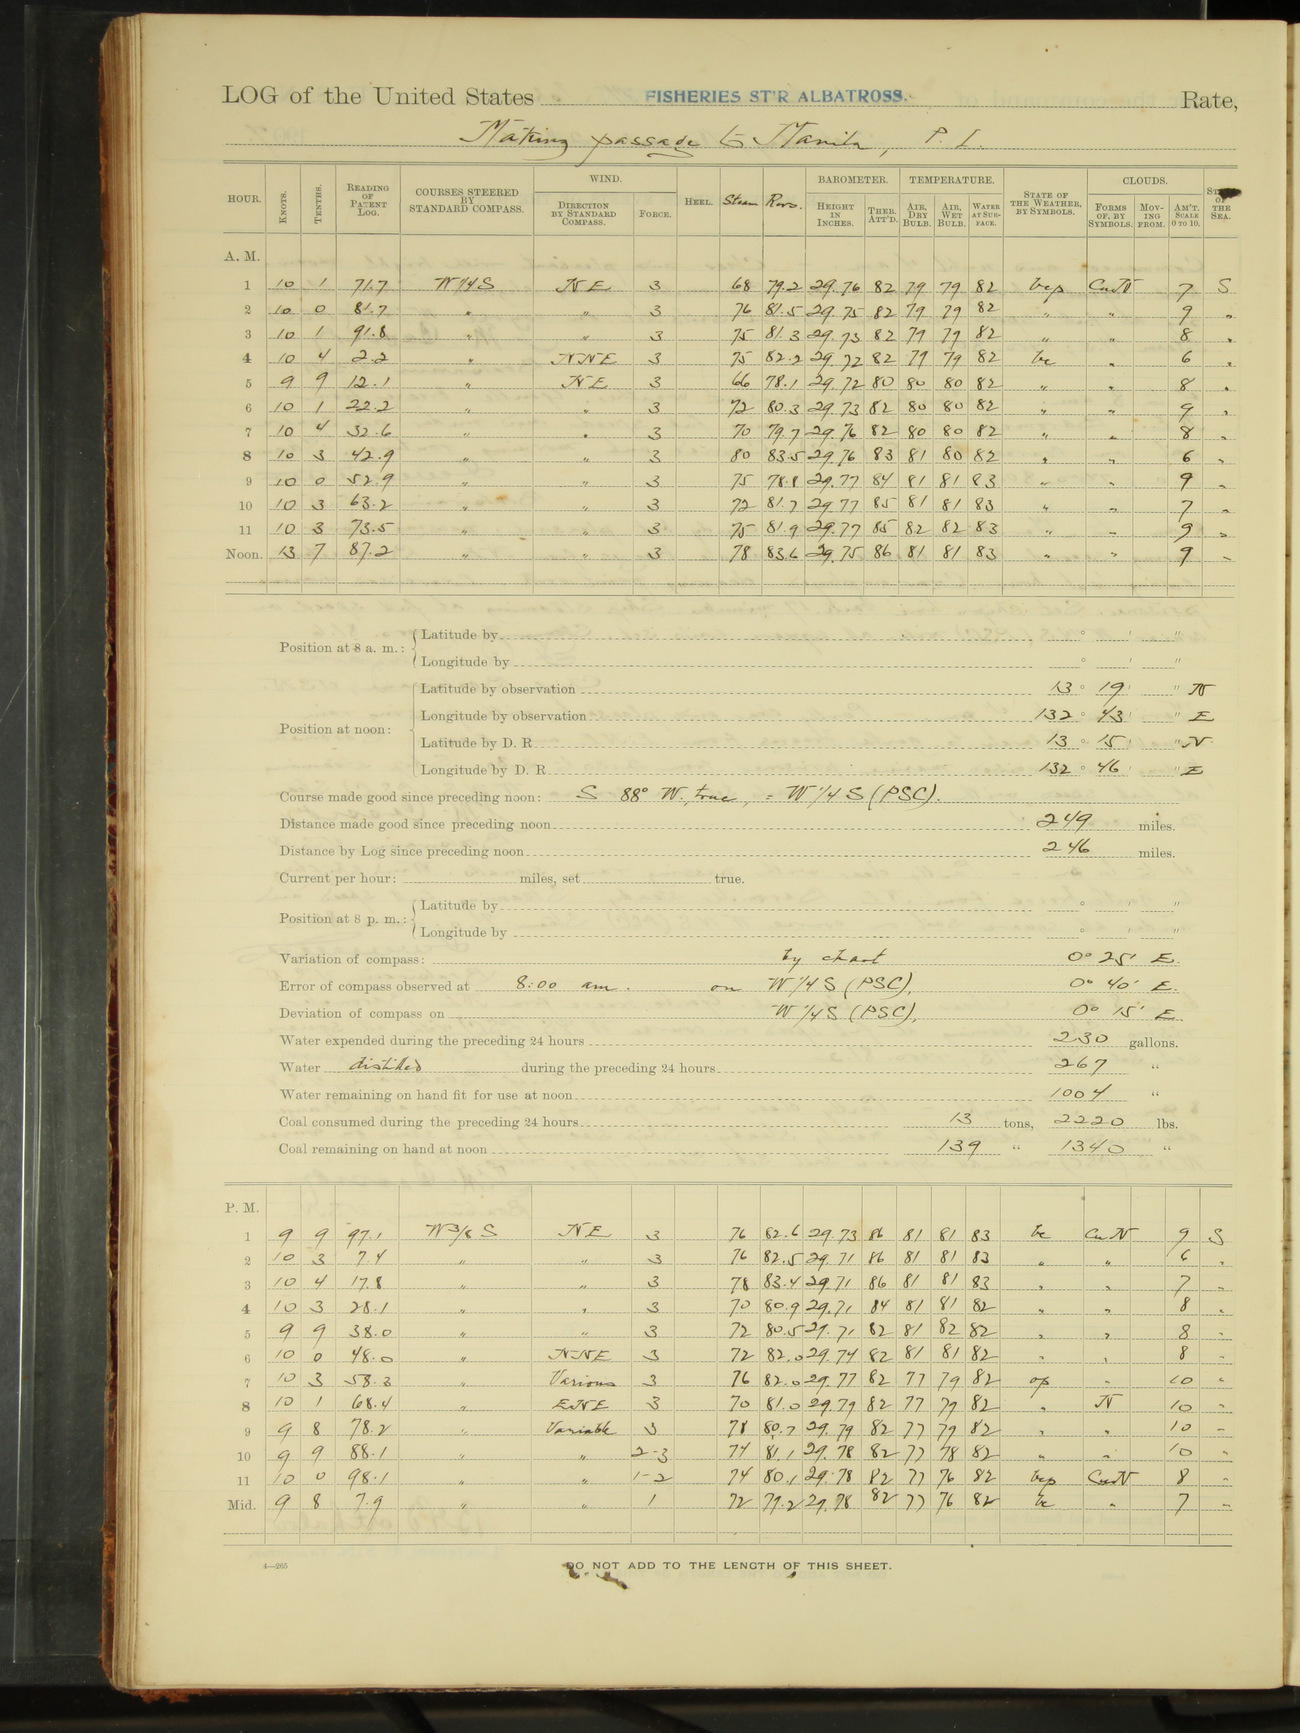 LOG of the United States FISHERIES ST'R ALBATROSS. Rate,
Making passage to Manila, P. I.
HOUR. KNOTS. TENTHS. READING OF PATENT LOG. COURSES STEERED BY STANDARD COMPASS. WIND. DIRECTION BY STANDARD COMPASS. FORCE. HEEL. Steam Revs. BAROMETER. HEIGHT IN INCHES. THER. ATT'D. TEMPERATURE. AIR, DRY BULB. AIR, WET BULB. WATER AT SURFACE. STATE OF THE WEATHER, BY SYMBOLS. CLOUDS. FORMS OF, BY SYMBOLS. MOVING FROM. AM'T. SCALE 0 TO 10. OF THE SEA.
A. M.
1 10 1 71.7 W1/4S NE 3 68 79.2 29.76 82 79 79 82 bcp CuN 7 S
2 10 0 81.7 " " 3 76 81.5 29.75 82 79 79 82 " " 9 "
3 10 1 91.8 " " 3 75 81.3 29.73 82 79 79 82 " " 8 "
4 10 4 2.2 " NNE 3 75 82.2 29.72 82 79 79 82 bc " 6 "
5 9 9 12.1 " NE 3 66 78.1 29.72 80 80 80 82 " " 8 "
6 10 1 22.2 " " 3 72 80.3 29.73 82 80 80 82 " " 9 "
7 10 4 32.6 " " 3 70 79.7 29.76 82 80 80 82 " " 8 "
8 10 3 42.9 " " 3 80 83.5 29.76 83 81 80 82 " " 6 "
9 10 0 52.9 " " 3 75 78.8 29.77 84 81 81 83 " " 9 "
10 10 3 63.2 " " 3 72 81.7 29.77 85 81 81 83 " " 7 "
11 10 3 73.5 " " 3 75 81.9 29.77 85 82 82 83 " " 9 "
Noon. 13 7 87.2 " " 3 78 83.6 29.75 86 81 81 83 " " 9 "
Position at 8 a. m.: Latitude by ° ' "
Longitude by ° ' "
Position at noon: Latitude by observation 13 ° 19 ' " N
Longitude by observation 132 ° 43 ' " E
Latitude by D. R. 13 ° 15 ' " N
Longitude by D. R. 132 ° 46 ' " E
Course made good since preceding noon: S 88° W. true, = W 1/4 S (PSC).
Distance made good since preceding noon 249 miles.
Distance by Log since preceding noon 246 miles.
Current per hour: miles, set true.
Position at 8 p. m.: Latitude by ° ' "
Longitude by ° ' "
Variation of compass: by chart 0° 25' E.
Error of compass observed at 8:00 am. on W 1/4 S (PSC). 0° 40' E.
Deviation of compass on W 1/4 S (PSC). 0° 15' E
Water expended during the preceding 24 hours 230 gallons.
Water distilled during the preceding 24 hours 267 "
Water remaining on hand fit for use at noon 1004 "
Coal consumed during the preceding 24 hours 13 tons, 2220 lbs.
Coal remaining on hand at noon 139 " 1340 "
P. M.
1 9 9 97.1 W3/8 S NE 3 76 82.6 29.73 86 81 81 83 bc CuN 9 S
2 10 3 7.4 " " 3 76 82.5 29.71 86 81 81 83 " " 6 "
3 10 4 17.8 " " 3 78 83.4 29.71 86 81 81 83 " " 7 "
4 10 3 28.1 " " 3 70 80.9 29.71 84 81 81 82 " " 8 "
5 9 9 38.0 " " 3 72 80.5 29.71 82 81 82 82 " " 8 "
6 10 0 48.0 " NNE 3 72 82.0 29.74 82 81 81 82 " " 8 "
7 10 3 58.3 " Various 3 76 82.0 29.77 82 77 79 82 op " 10 "
8 10 1 68.4 " ENE 3 70 81.0 29.79 82 77 79 82 " N 10 "
9 9 8 78.2 " Variable 3 78 80.7 29.79 82 77 79 82 " " 10 "
10 9 9 88.1 " " 2-3 74 81.1 29.78 82 77 78 82 " " 10 "
11 10 0 98.1 " " 1-2 74 80.1 29.78 82 77 76 82 bcp CuN 8 "
Mid. 9 8 7.9 " " 1 72 79.2 29.78 82 77 76 82 bc " 7 "
4—265 DO NOT ADD TO THE LENGTH OF THIS SHEET.